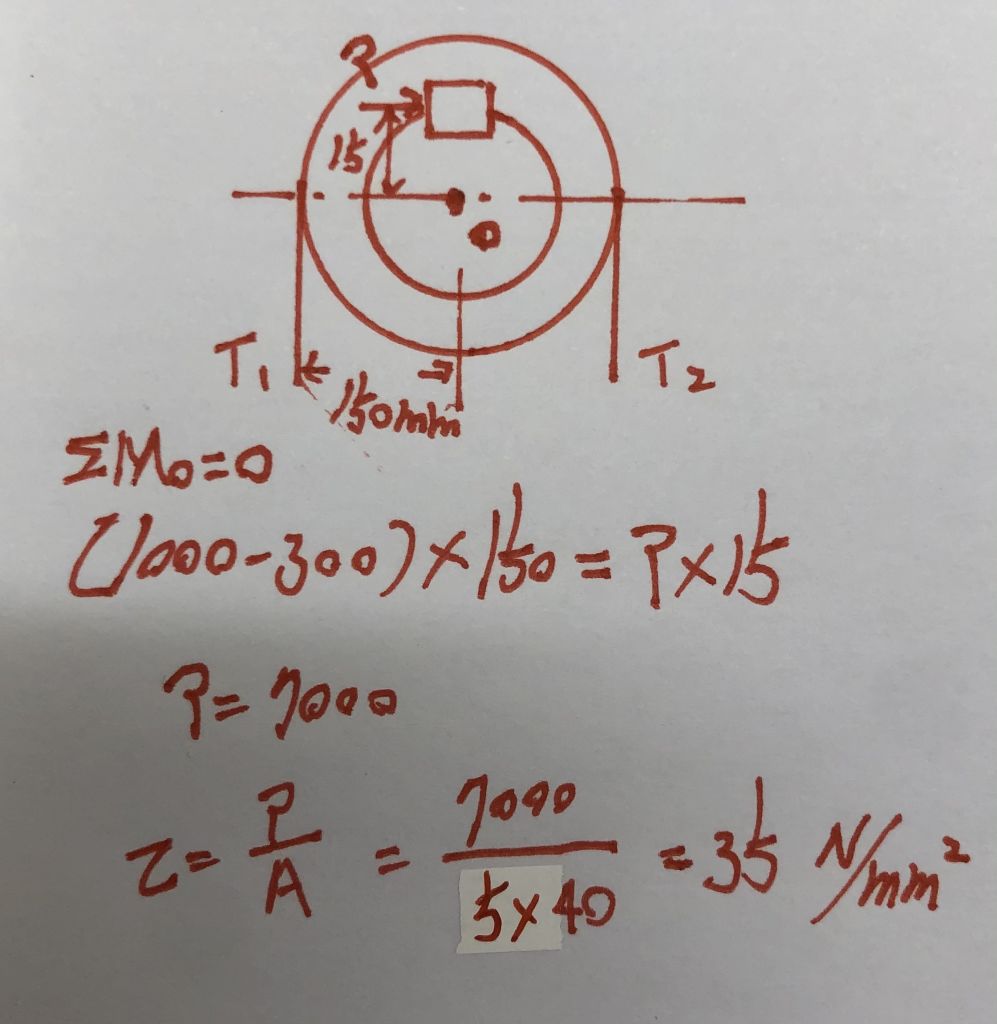 P
15
O
T₁
150mm
T₂
ΣMo=0
(1000-300)×150=P×15
P=7000
τ=P/A=7000/5×40=35 N/mm²